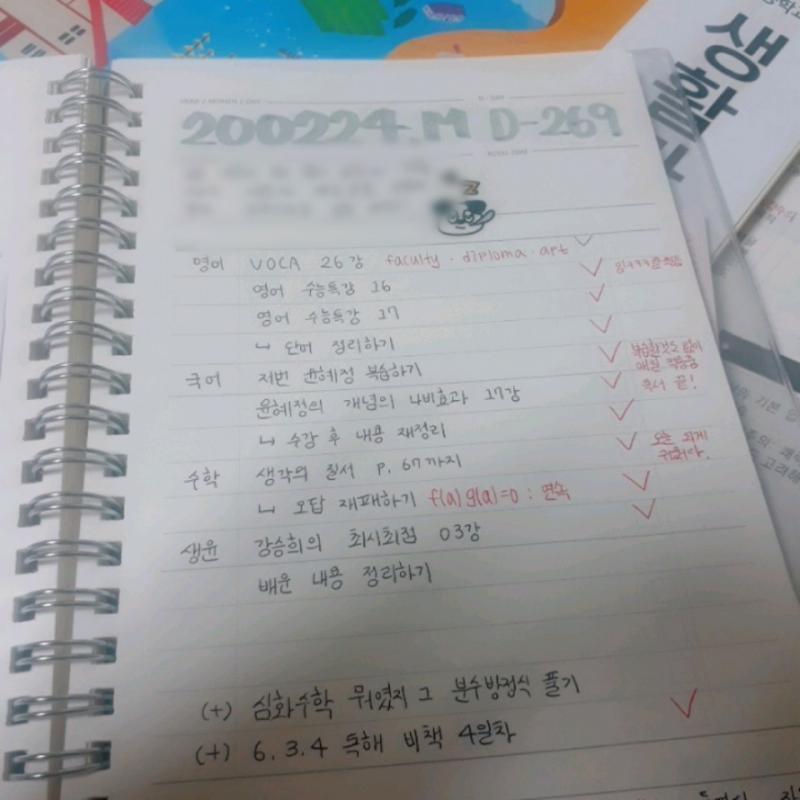 200224.M D-269
영어 VOCA 26강 faculty · diploma · apt
영어 수능특강 16
영어 수능특강 17
↳ 단어 정리하기
국어 저번 윤혜정 복습하기
윤혜정의 개념의 나비효과 17강
↳ 수강 후 내용 재정리
수학 생각의 질서 P. 67까지
↳ 오답 재패하기 f(a)g(a)=0 : 연속
생윤 강승희의 최시최점 03강
배운 내용 정리하기
(+) 심화수학 뭐였지 그 분수방정식 풀기
(+) 6.3.4 독해 비책 4일차
복습할것도 많이
독서 끝!
오늘
생활